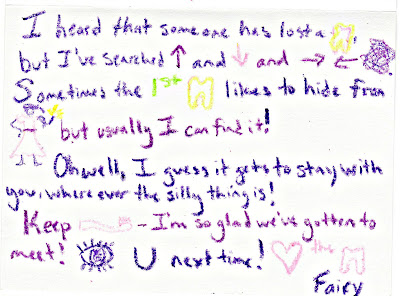 I heard that someone has lost a
but I've searched ↑ and ↓ and → ←
Sometimes the 1st likes to hide from
but usually I can find it!
Oh well, I guess it gets to stay with
you, where ever the silly thing is!
Keep - I'm so glad we've gotten to
meet! U next time! the
Fairy